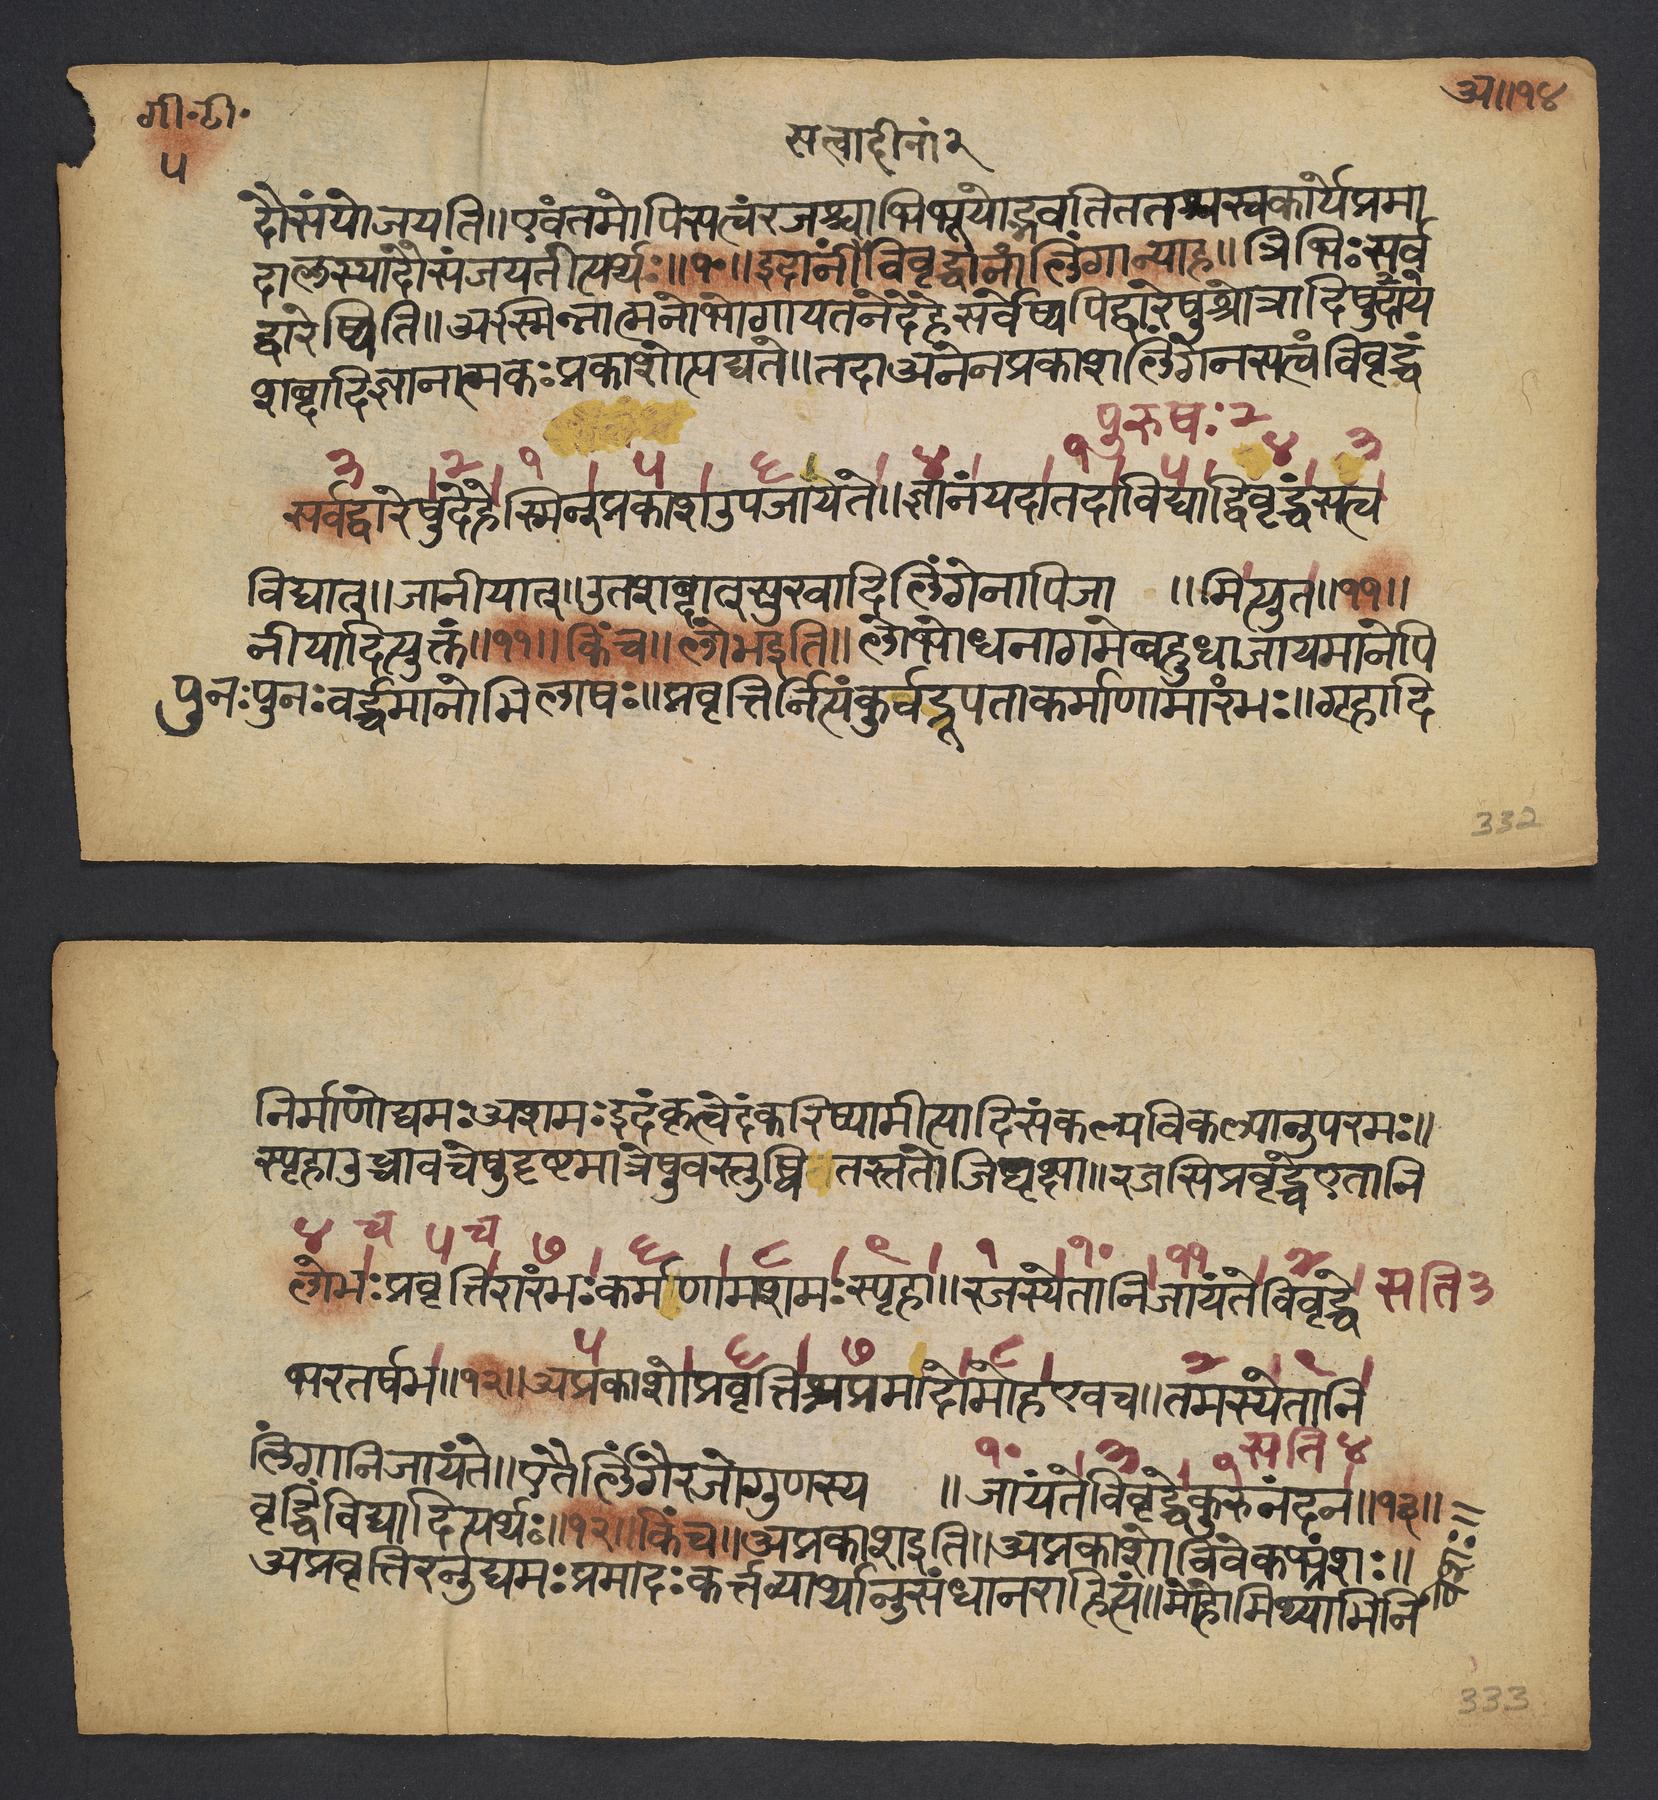 गी॰टी॰
५
अ॥१४
सत्वादीनां२
दौसंयोजयति॥एवंतमोपिसत्वंरजश्चाभिभूयोद्भवतिततश्चस्वकार्येप्रमा
दालस्यादौसंजयतीत्यर्थः॥१०॥इदानींविवृद्धानांलिंगान्याह॥त्रिभिःसर्व
द्वारेष्विति॥अस्मिन्नात्मनोभोगायतनेदेहेसर्वेष्वपिद्वारेषुश्रोत्रादिषुयदाय
शब्दादिज्ञानात्मकःप्रकाशोत्पद्यते॥तदाअनेनप्रकाशलिंगेनसत्वंविवृद्धं
पुरुषः२
३ २ १ ५ ६ ४ १ ५ ४ ३
सर्वद्वारेषुदेहेस्मिन्प्रकाशउपजायते॥ज्ञानंयदातदाविद्याद्विवृद्धंसत्व
विद्यात्॥जानीयात्॥उतशब्दात्सुखादिलिंगेनापिजा ॥मित्युत॥११॥
नीयादित्युक्तं॥११॥किंच॥लोभइति॥लोभोधनागमेबहुधाजायमानेपि
पुनःपुनःवर्द्धमानोभिलाषः॥प्रवृत्तिर्नित्यंकुर्वद्रूपताकर्माणामारंभः॥गृहादि
332
निर्माणोद्यमःअशमःइदंकृत्वेदंकरिष्यामीत्यादिसंकल्पविकल्पानुपरमः॥
स्पृहाउच्चावचेषुदृष्टमात्रेषुवस्तुष्वितस्ततोजिघृक्षा॥रजसिप्रवृद्धेएतानि
४ च ५ च ७ ६ ८ ९ १ १० ११ २
लोभःप्रवृत्तिरारंभःकर्माणामशमःस्पृहा॥रजस्येतानिजायंतेविवृद्धे सति३
५ ६ ७ ८ २ ९
भरतर्षभ॥१२॥अप्रकाशोप्रवृत्तिश्चप्रमादोमोहएवच॥तमस्येतानि
१० ३ १ सति४
लिंगानिजायंते॥एतैर्लिंगैरजोगुणस्य ॥जायंतेविवृद्धेकुरुनंदन॥१३॥
वृद्धिंविद्यादित्यर्थः॥१२॥किंच॥अप्रकाशइति॥अप्रकाशोविवेकभ्रंशः॥
अप्रवृत्तिरनुद्यमःप्रमादःकर्त्तव्यार्थानुसंधानराहित्यं॥मोहोमिथ्याभिनि
333